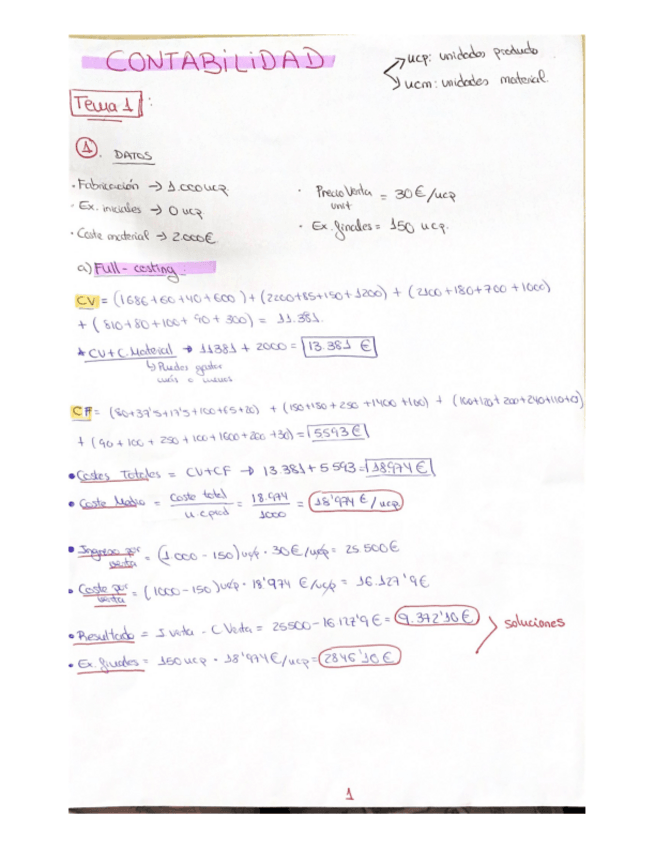 CONTABILIDAD
ucp: unidades producto
ucm: unidades material
Tema 1:
1. DATOS
· Fabricación → 1.000 ucp
· Ex. iniciales → 0 ucp
· Coste material → 2000€
· Precio Venta unit = 30€/ucp
· Ex. finales = 150 ucp.
a) Full-costing:
CV = (1686+60+40+600) + (2200+85+150+1200) + (2100+180+700+1000)
+ (810+80+100+90+300) = 11.381.
* CV+C.Material → 11381 + 2000 = 13.381 €
↳ Puedes gastar
más o menos
CF = (80+37'5+17'5+100+65+20) + (150+150+250+1400+100) + (100+120+200+240+110+0)
+ (90+100+250+100+1600+200+30) = 5593€
• Costes Totales = CV+CF → 13.381+5.593 = 18974€
• Coste Medio = Coste total / u.c.prod = 18.974 / 1000 = 18'974 €/ucp
• Ingreso por venta = (1.000 - 150) ucp · 30€/ucp = 25.500€
• Coste por venta = (1000-150) ucp · 18'974 €/ucp = 16.127'9€
• Resultado = I venta - C Venta = 25500 - 16127'9€ = 9.372'10€
soluciones
• Ex. finales = 150 ucp · 18'974€/ucp = 2846'10€
1